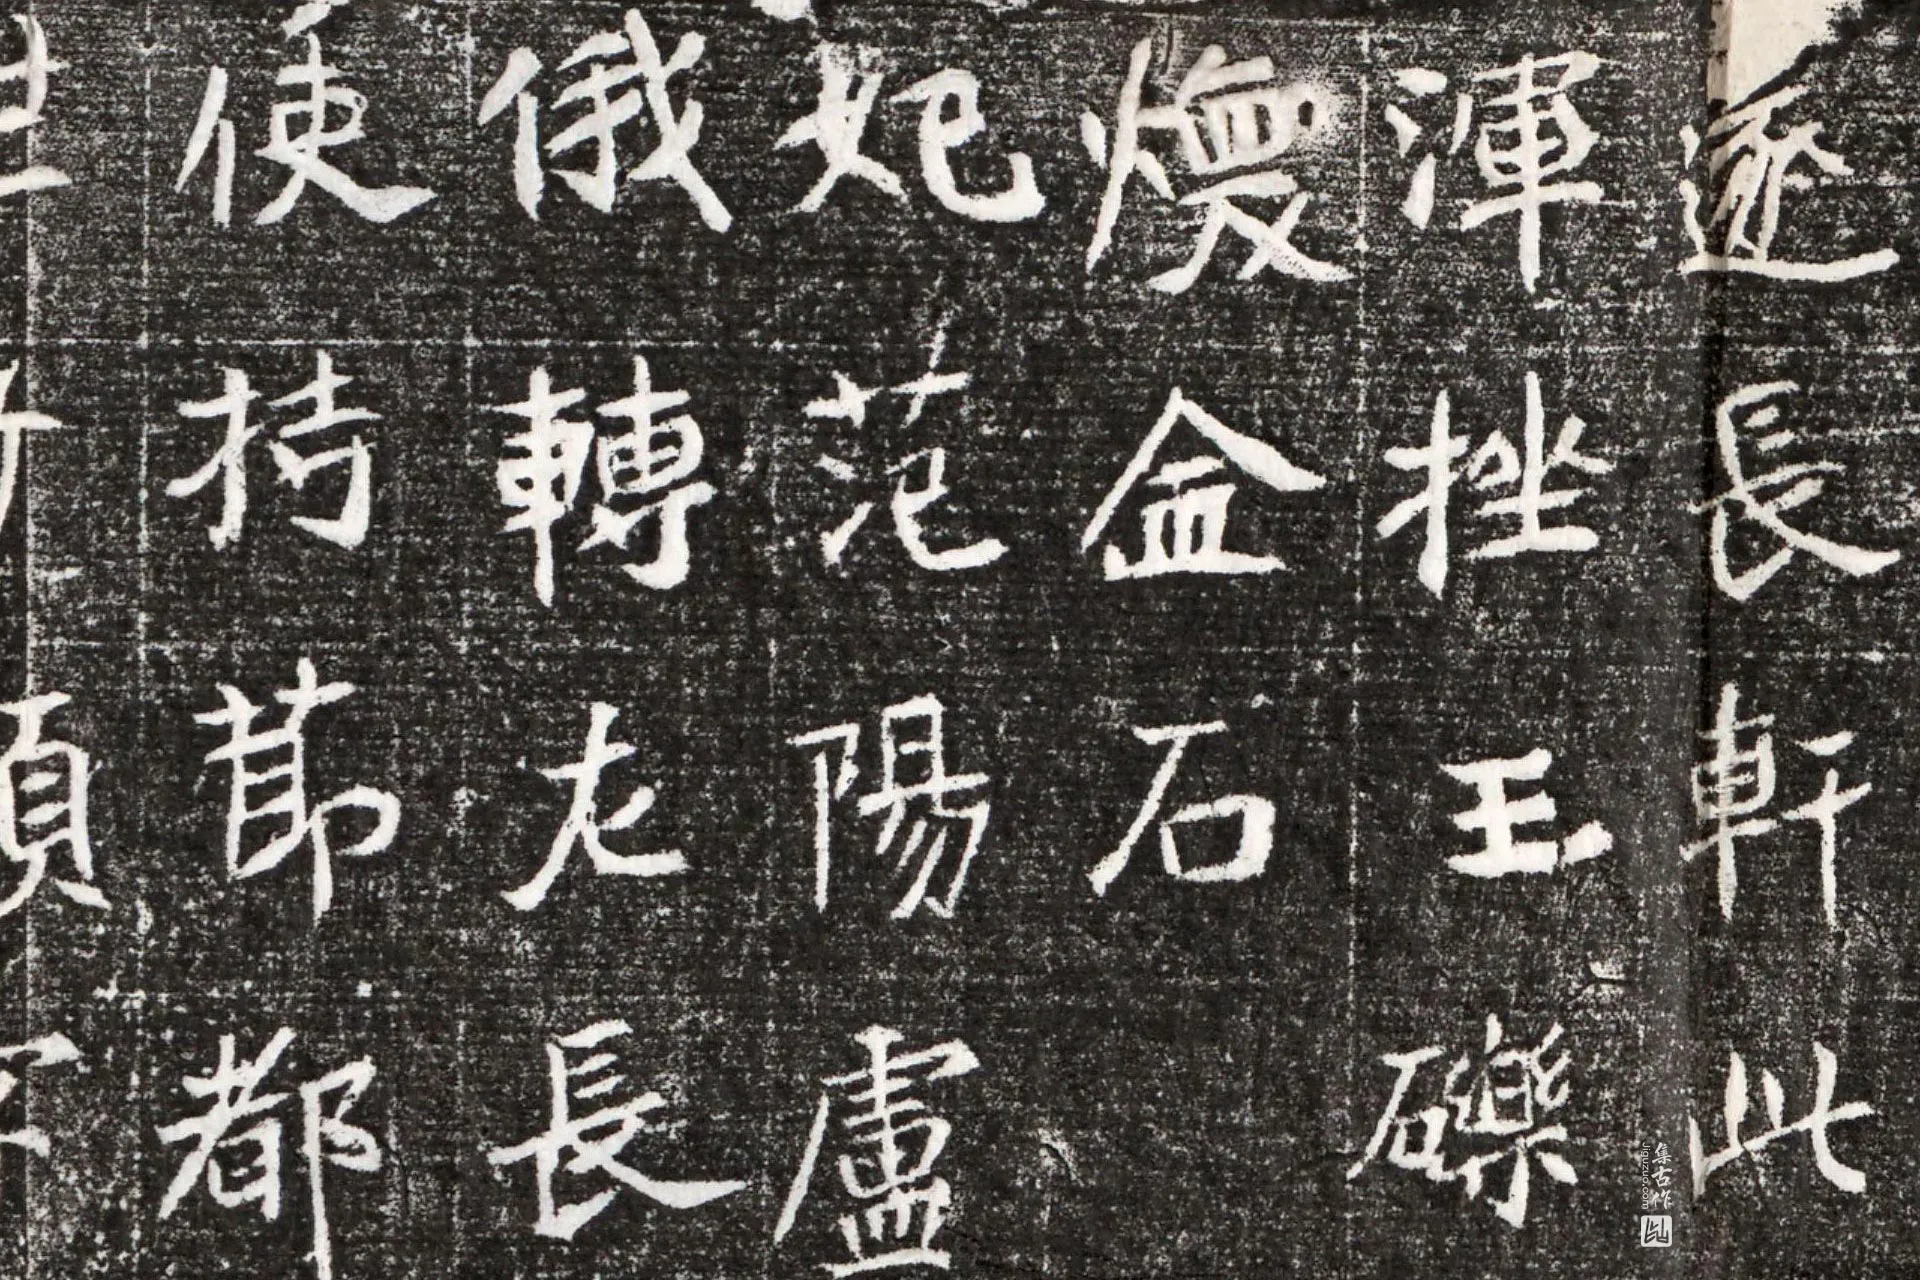 遼長軒此
渾挫玉礫
煚盒石
妃范陽盧
俄轉左長
使持節都
集古作
jiguzuo.com